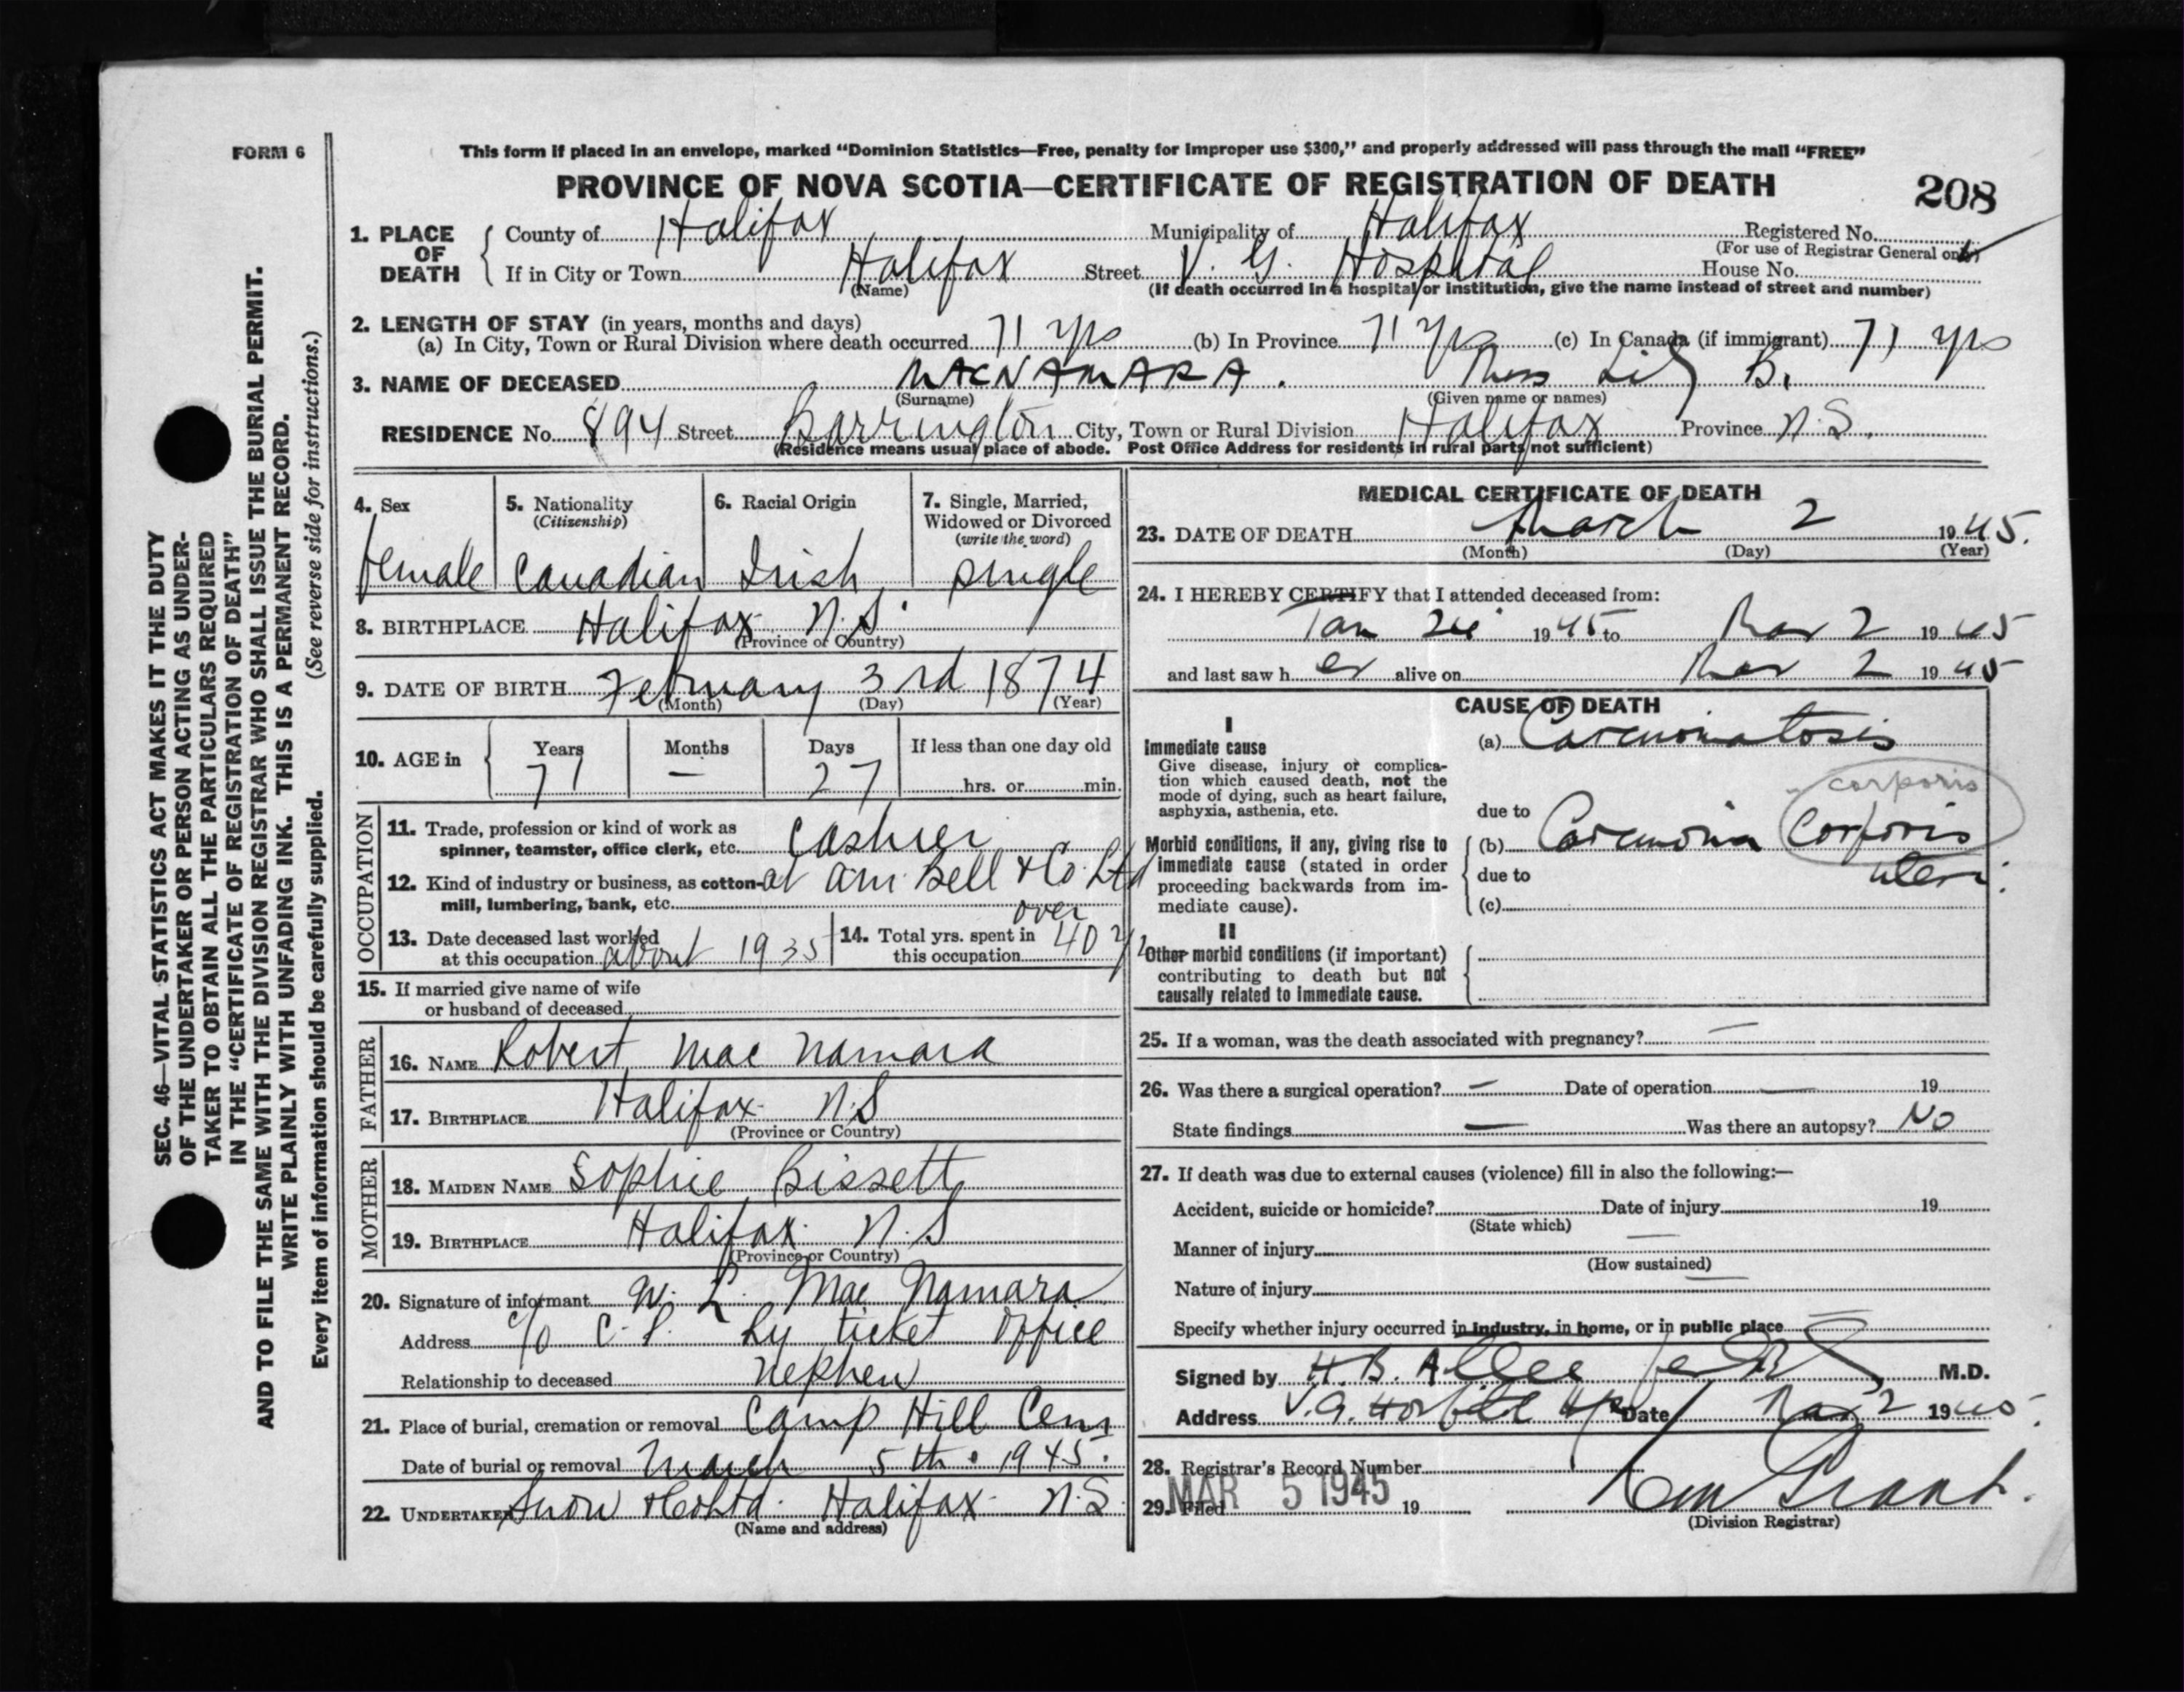 FORM 6
This form if placed in an envelope, marked “Dominion Statistics—Free, penalty for improper use $300,” and properly addressed will pass through the mail “FREE”
PROVINCE OF NOVA SCOTIA—CERTIFICATE OF REGISTRATION OF DEATH
208
1. PLACE OF DEATH
County of Halifax Municipality of Halifax Registered No.
(For use of Registrar General only)
If in City or Town Halifax Street V. G. Hospital House No.
(Name) (If death occurred in a hospital or institution, give the name instead of street and number)
2. LENGTH OF STAY (in years, months and days)
(a) In City, Town or Rural Division where death occurred 71 yrs (b) In Province 71 yrs (c) In Canada (if immigrant) 71 yrs
3. NAME OF DECEASED MACNAMARA. Miss Lily B.
(Surname) (Given name or names)
RESIDENCE No. 894 Street Barrington City, Town or Rural Division Halifax Province N.S.
(Residence means usual place of abode. Post Office Address for residents in rural parts not sufficient)
4. Sex
Female
5. Nationality
(Citizenship)
Canadian
6. Racial Origin
Irish
7. Single, Married,
Widowed or Divorced
(write the word)
single
8. BIRTHPLACE Halifax N.S.
(Province or Country)
9. DATE OF BIRTH February 3rd 1874
(Month) (Day) (Year)
10. AGE in Years Months Days If less than one day old
71 — 27 hrs. or min.
OCCUPATION
11. Trade, profession or kind of work as
spinner, teamster, office clerk, etc. Cashier
12. Kind of industry or business, as cotton- at A M Bell & Co. Ltd
mill, lumbering, bank, etc.
13. Date deceased last worked
at this occupation about 1935
14. Total yrs. spent in
this occupation over 40
15. If married give name of wife
or husband of deceased
FATHER
16. NAME Robert Mac Namara
17. BIRTHPLACE Halifax N.S
(Province or Country)
MOTHER
18. MAIDEN NAME Sophie Bissett
19. BIRTHPLACE Halifax N.S
(Province or Country)
20. Signature of informant W. L. Mac Namara
Address c/o C.P. Ry ticket office
Relationship to deceased nephew
21. Place of burial, cremation or removal Camp Hill Cem
Date of burial or removal March 5th. 1945.
22. UNDERTAKER Snow & Co Ltd. Halifax N.S.
(Name and address)
MEDICAL CERTIFICATE OF DEATH
23. DATE OF DEATH March 2 1945.
(Month) (Day) (Year)
24. I HEREBY CERTIFY that I attended deceased from:
Jan 1945 to Mar 2 1945
and last saw her alive on Mar 2 1945
CAUSE OF DEATH
I
Immediate cause
Give disease, injury or complica-
tion which caused death, not the
mode of dying, such as heart failure,
asphyxia, asthenia, etc.
(a) Carcinomatosis
due to
corporis
Morbid conditions, if any, giving rise to
immediate cause (stated in order
proceeding backwards from im-
mediate cause).
(b) Carcinoma Corporis
due to uteri.
(c)
II
Other morbid conditions (if important)
contributing to death but not
causally related to immediate cause.
25. If a woman, was the death associated with pregnancy? —
26. Was there a surgical operation? — Date of operation — 19
State findings — Was there an autopsy? No
27. If death was due to external causes (violence) fill in also the following:—
Accident, suicide or homicide? Date of injury 19
(State which)
Manner of injury
(How sustained)
Nature of injury
Specify whether injury occurred in industry, in home, or in public place
Signed by H. B. Atlee M.D.
Address V.G. Hospital Hfx Date Mar 2 1945.
28. Registrar's Record Number
29. Filed 19
MAR 5 1945
(Division Registrar)
SEC. 46—VITAL STATISTICS ACT MAKES IT THE DUTY
OF THE UNDERTAKER OR PERSON ACTING AS UNDER-
TAKER TO OBTAIN ALL THE PARTICULARS REQUIRED
IN THE “CERTIFICATE OF REGISTRATION OF DEATH”
AND TO FILE THE SAME WITH THE DIVISION REGISTRAR WHO SHALL ISSUE THE BURIAL PERMIT.
WRITE PLAINLY WITH UNFADING INK. THIS IS A PERMANENT RECORD.
Every item of information should be carefully supplied. (See reverse side for instructions.)